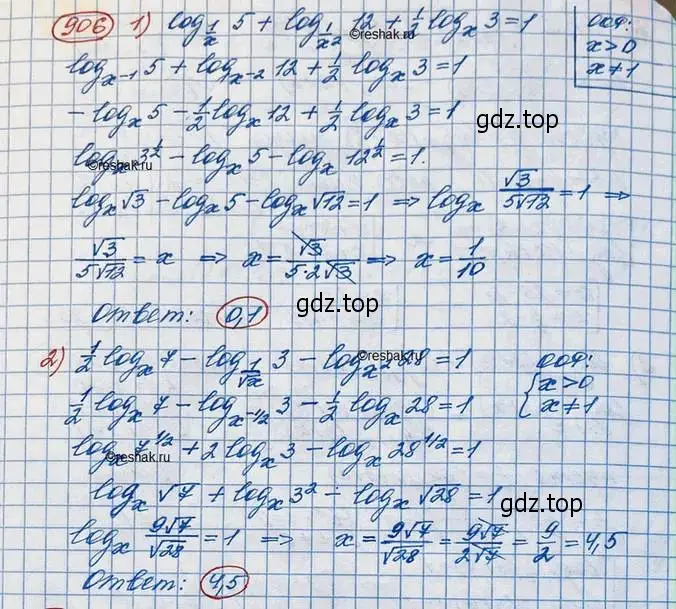 906 1) log_{1/x} 5 + log_{1/x²} 12 + ½ log_x 3 = 1
ООФ:
x > 0
x ≠ 1
©reshak.ru
log_{x⁻¹} 5 + log_{x⁻²} 12 + ½ log_x 3 = 1
- log_x 5 - ½ log_x 12 + ½ log_x 3 = 1
gdz.top
log_x 3^{½} - log_x 5 - log_x 12^{½} = 1.
©reshak.ru
log_x √3 - log_x 5 - log_x √12 = 1 ⇒ log_x √3/(5√12) = 1 ⇒
√3/(5√12) = x ⇒ x = √3/(5·2√3) ⇒ x = 1/10
gdz.top
Ответ: 0,1
2) ½ log_x 7 - log_{1/√x} 3 - log_{x²} 28 = 1
ООФ:
{x > 0
x ≠ 1
©reshak.ru
½ log_x 7 - log_{x^{-1/2}} 3 - ½ log_x 28 = 1
log_x 7^{1/2} + 2 log_x 3 - log_x 28^{1/2} = 1
©reshak.ru
log_x √7 + log_x 3² - log_x √28 = 1
gdz.top
log_x 9√7/√28 = 1 ⇒ x = 9√7/√28 = 9√7/2√7 = 9/2 = 4,5
Ответ: 4,5